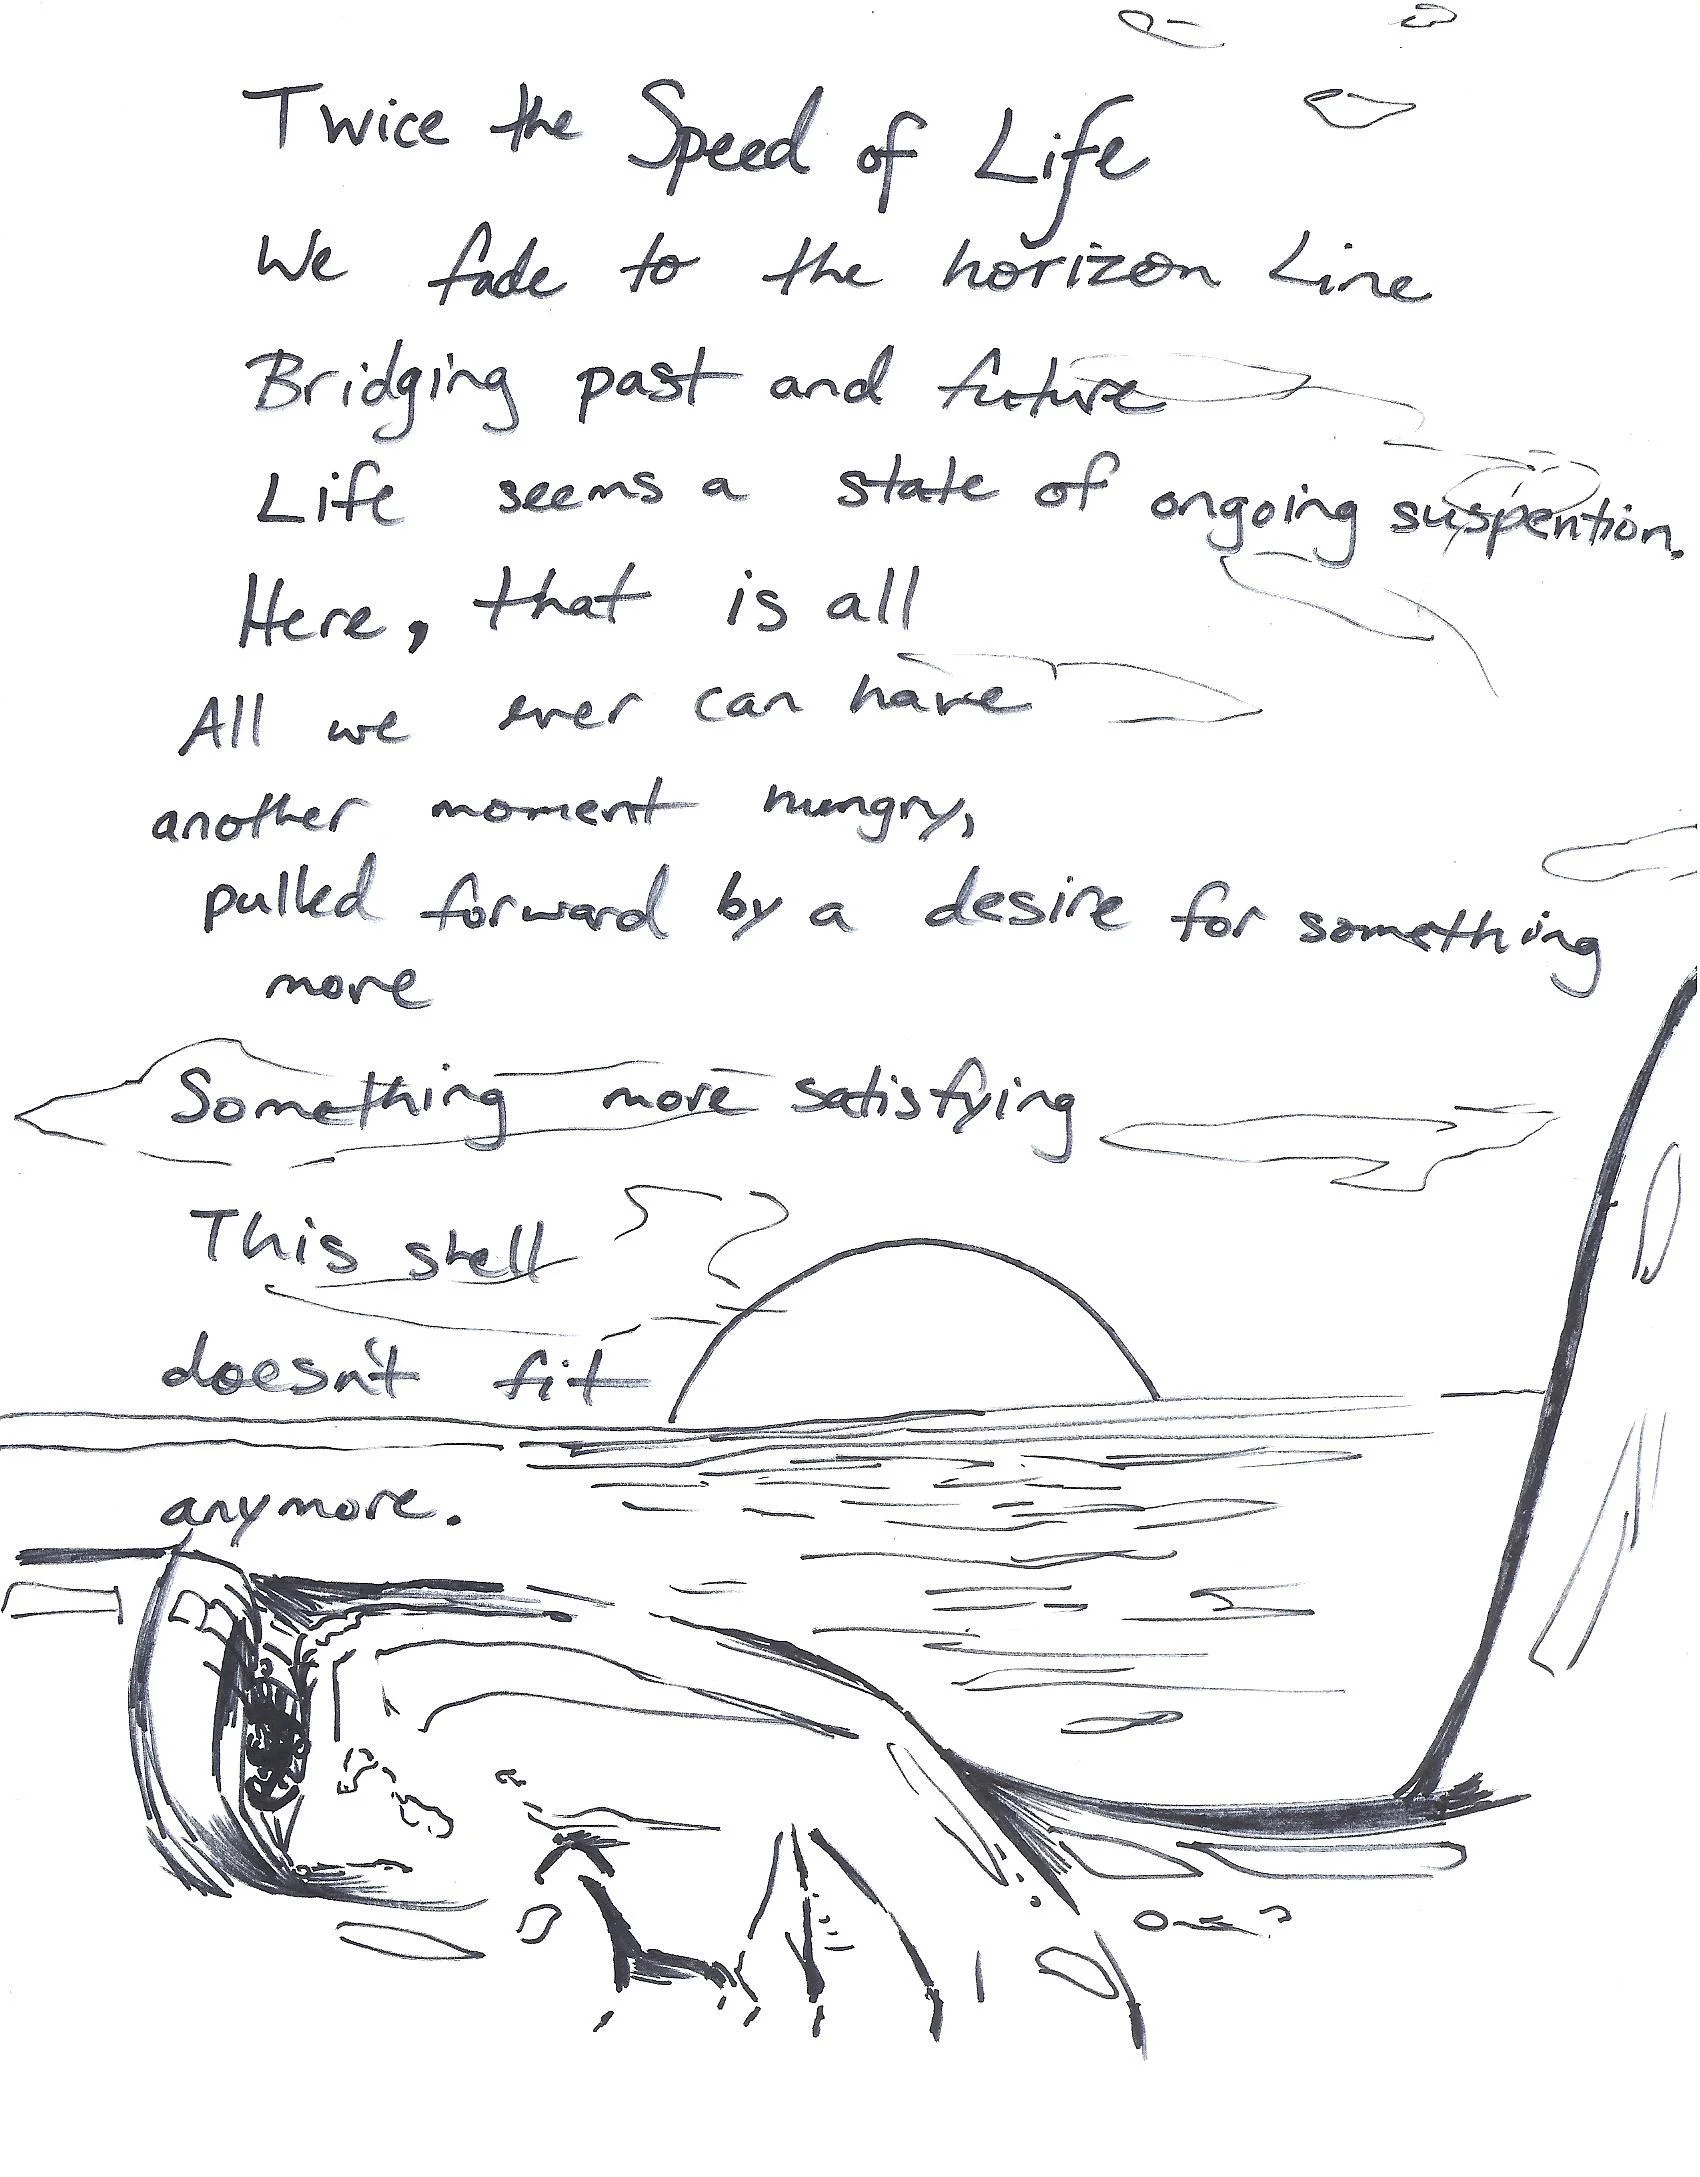 Twice the Speed of Life
We fade to the horizon Line
Bridging past and future
Life seems a state of ongoing suspention.
Here, that is all
All we ever can have
another moment hungry,
pulled forward by a desire for something
more
Something more satisfying
This shell
doesn't fit
anymore.